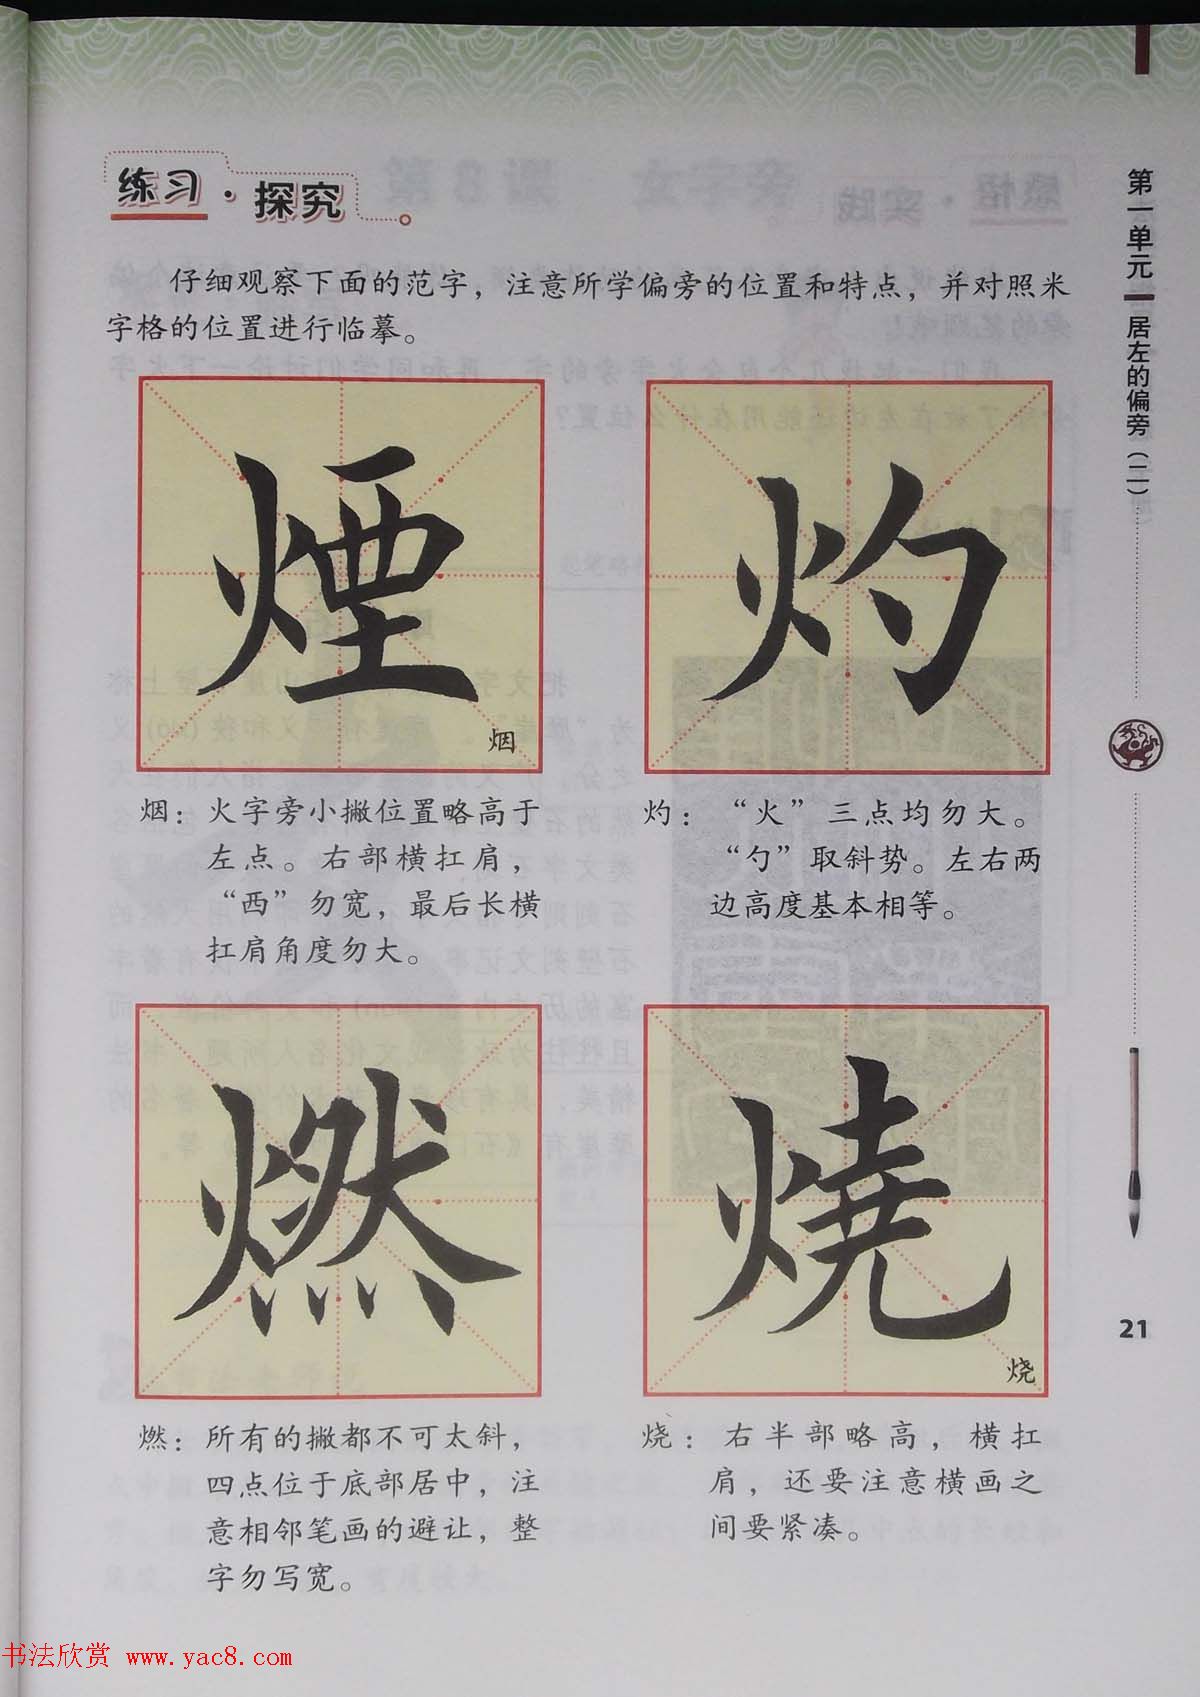 练习·探究
仔细观察下面的范字，注意所学偏旁的位置和特点，并对照米
字格的位置进行临摹。
煙
烟
灼
烟：火字旁小撇位置略高于
左点。右部横扛肩，
“西”勿宽，最后长横
扛肩角度勿大。
灼：“火”三点均勿大。
“勺”取斜势。左右两
边高度基本相等。
燃
燒
烧
燃：所有的撇都不可太斜，
四点位于底部居中，注
意相邻笔画的避让，整
字勿写宽。
烧：右半部略高，横扛
肩，还要注意横画之
间要紧凑。
第一单元 居左的偏旁（二）
21
书法欣赏 www.yac8.com